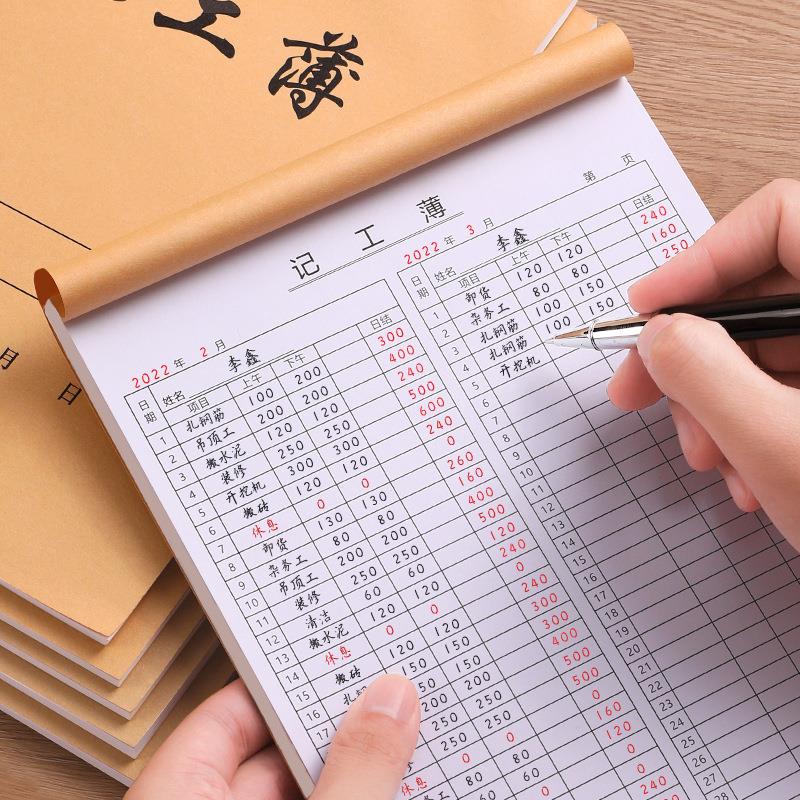 工薄
月
日
记 工 薄
第 页
2022 年 2 月
日期 姓名 李鑫 日结
项目 上午 下午
1 扎钢筋 100 200 300
2 吊顶工 200 200 400
3 搬水泥 120 120 240
4 装修 250 250 500
5 开挖机 300 300 600
6 搬砖 120 120 240
7 休息 0 0 0
8 卸货 130 130 260
9 杂务工 80 80 160
10 吊顶工 200 200 400
11 装修 250 250 500
12 清洁 60 60 120
13 搬水泥 120 120 240
14 休息 0 0 0
15 搬砖 120 120 240
16 扎 150 150 300
17 200 200 400
250 250 500
250 250 500
休息 0 0 0
80 80 160
60 60 120
0
240
2022 年 3 月
日期 姓名 李鑫 日结
项目 上午 下午
1 卸货 120 120 240
2 杂务工 80 80 160
3 扎钢筋 100 150 250
4 扎钢筋 100 150
5 开挖机
6
7
8
9
10
11
12
13
14
15
16
17
18
19
20
21
22
23
24
25
26
27
28